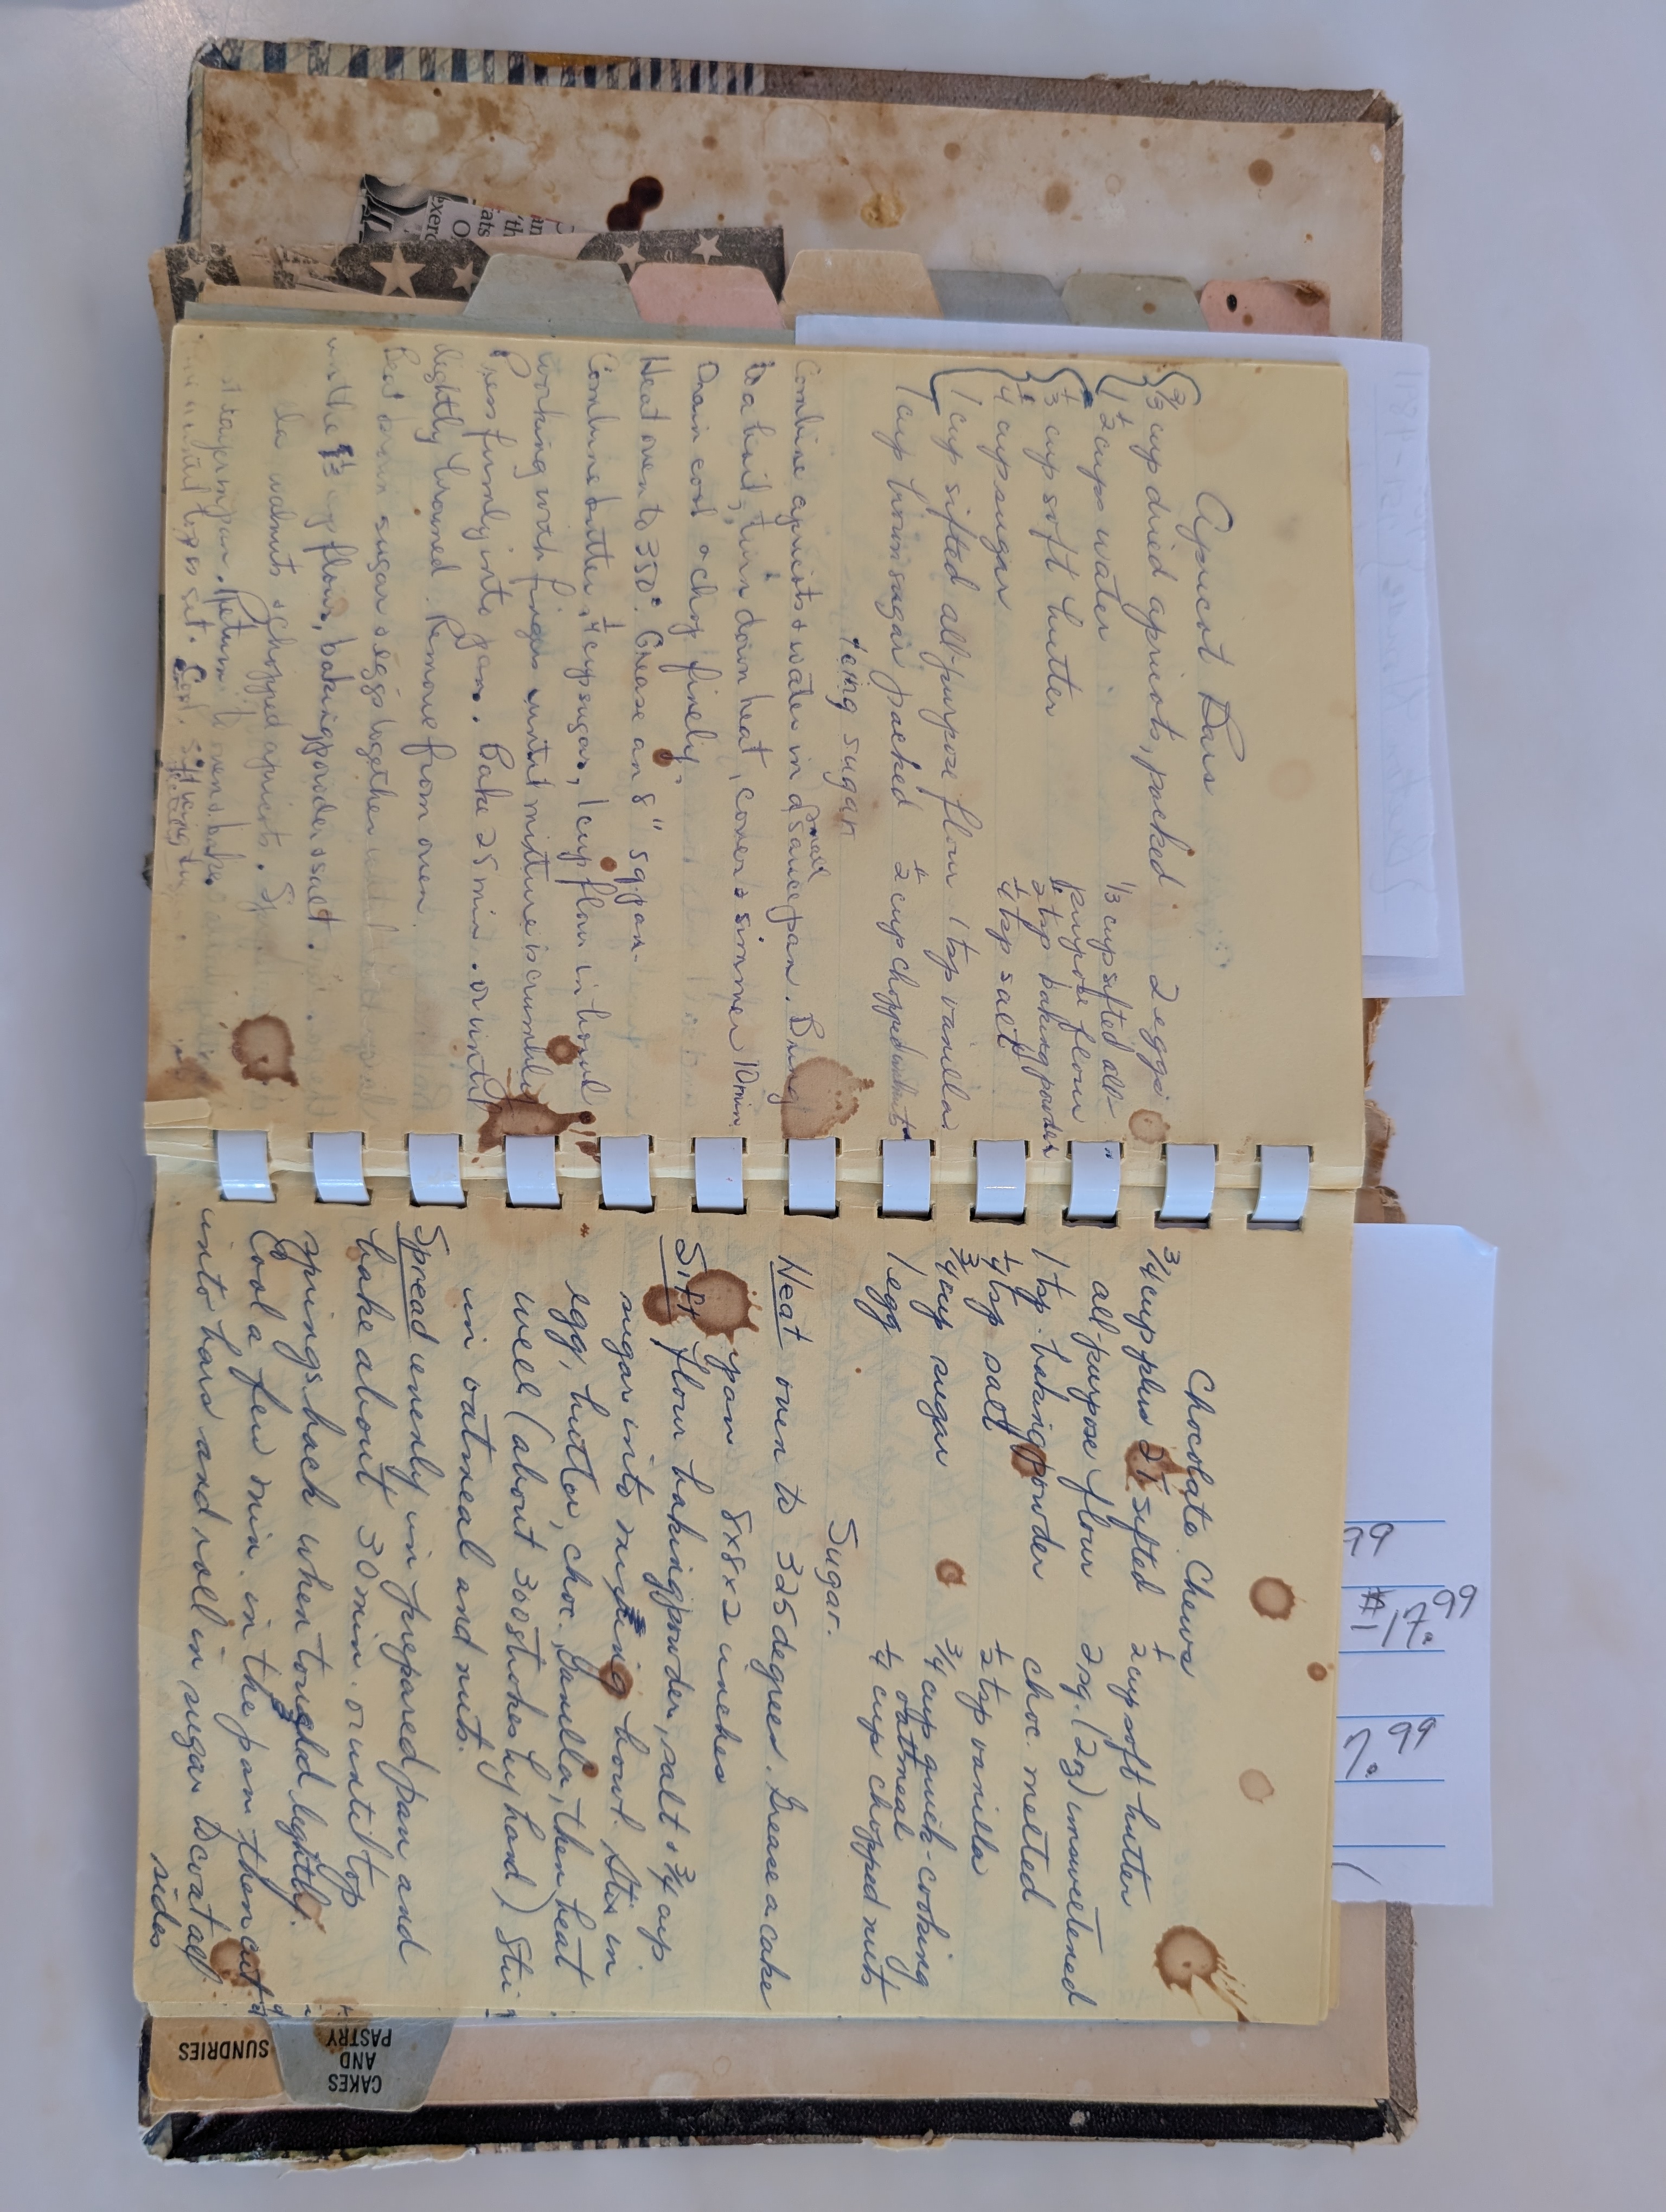 Apricot Bars
2/3 cup dried apricots, packed
1 1/2 cups water
1/3 cup soft butter
1/4 cup sugar
1 cup sifted all-purpose flour
1 cup brown sugar packed
2 eggs
1/3 cup sifted all-
purpose flour
1/2 tsp baking powder
1/4 tsp salt
1 tsp vanilla
1/2 cup chopped walnuts
icing sugar
Combine apricots & water in a small saucepan. Bring
to a boil, turn down heat, cover & simmer 10 min.
Drain cool & chop finely.
Heat oven to 350°. Grease an 8" sq pan.
Combine butter, 1/4 cup sugar, 1 cup flour in bowl
working with fingers until mixture is crumbly
Press firmly into pan. Bake 25 min. or until
lightly browned. Remove from oven.
Beat brown sugar & eggs together
in the 1/3 cup flour, baking powder & salt.
walnuts & chopped apricots.
layer in pan. Return to oven & bake
until top is set. Cool.
Chocolate Chews
3/4 cup plus 2 T sifted
all-purpose flour
1 tsp. baking powder
1/4 tsp salt
3/4 cup sugar
1 egg
1/2 cup soft butter
2 sq. (2 oz) unsweetened
choc. melted
1/2 tsp vanilla
3/4 cup quick-cooking
oatmeal
1/4 cup chopped nuts
Sugar.
Heat oven to 325 degrees. Grease a cake
pan 8x8x2 inches
Sift flour baking powder, salt & 3/4 cup
sugar into mixing bowl. Mix in
egg, butter, choc., vanilla, then beat
well (about 300 strokes by hand) Stir
in oatmeal and nuts.
Spread evenly in prepared pan and
bake about 30 min. or until top
springs back when touched lightly.
Cool a few min. in the pan then cut
into bars and roll in sugar to coat all
sides
CAKES
AND
PASTRY
SUNDRIES
99
17.99
7.99